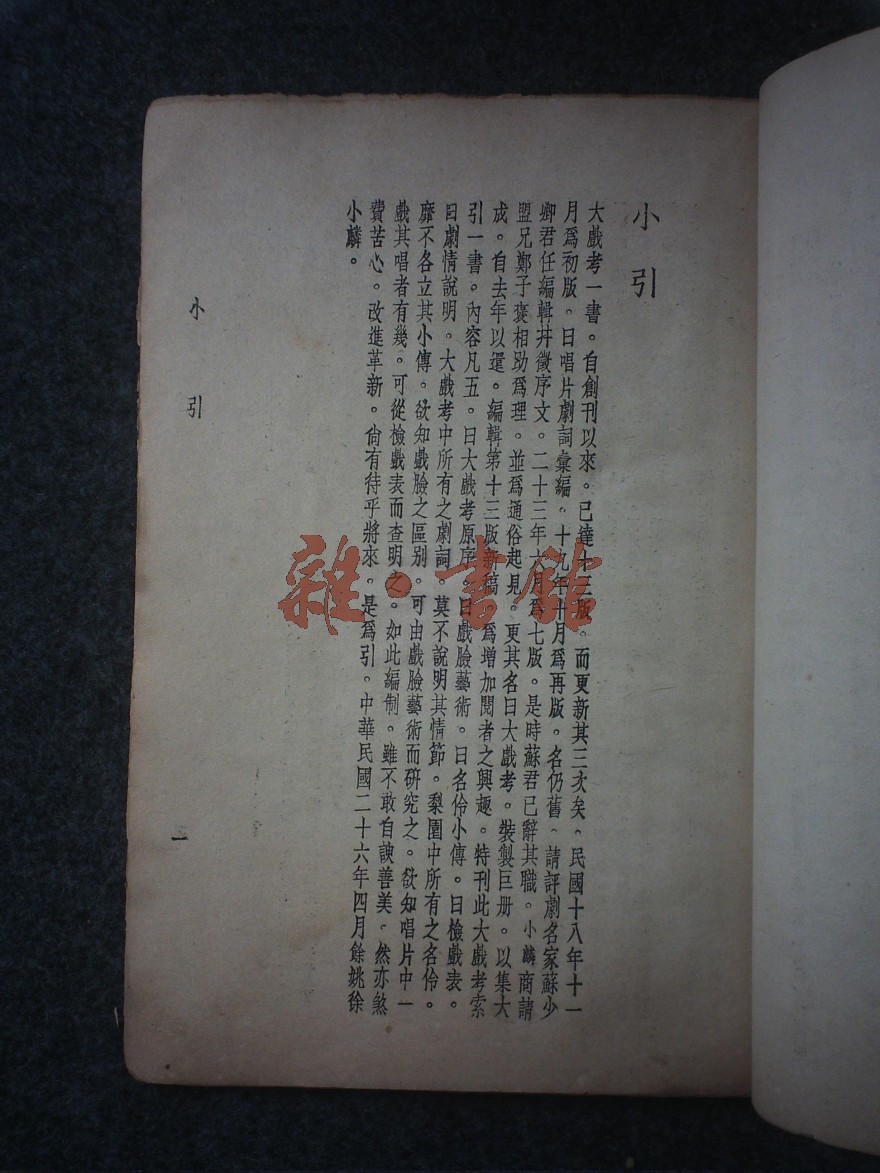 小引
大戲考一書。自創刊以來。已達十三版。而更新其三次矣。民國十八年十一
月爲初版。曰唱片劇詞彙編。十九年十月爲再版。名仍舊。請評劇名家蘇少
卿君任編輯幷徵序文。二十三年六月爲七版。是時蘇君已辭其職。小麟商請
盟兄鄭子褒相助爲理。並爲通俗起見。更其名曰大戲考。裝製巨册。以集大
成。自去年以還。編輯第十三版新稿。爲增加閱者之興趣。特刊此大戲考索
引一書。內容凡五。曰大戲考原序。曰戲臉藝術。曰名伶小傳。曰檢戲表。
曰劇情說明。大戲考中所有之劇詞。莫不說明其情節。梨園中所有之名伶。
靡不各立其小傳。欲知戲臉之區別。可由戲臉藝術而研究之。欲知唱片中一
戲其唱者有幾。可從檢戲表而查明之。如此編制。雖不敢自諛善美。然亦煞
費苦心。改進革新。尙有待乎將來。是爲引。中華民國二十六年四月餘姚徐
小麟。
小引
一
雜·書館